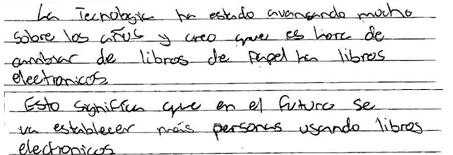 La Tecnologia ha estado avansando mucho
sobre los años y creo que es hora de
cambiar de libros de papel ha libros
electronicos.
Esto significa que en el futuro se
va establecer más personas usando libros
electronicos